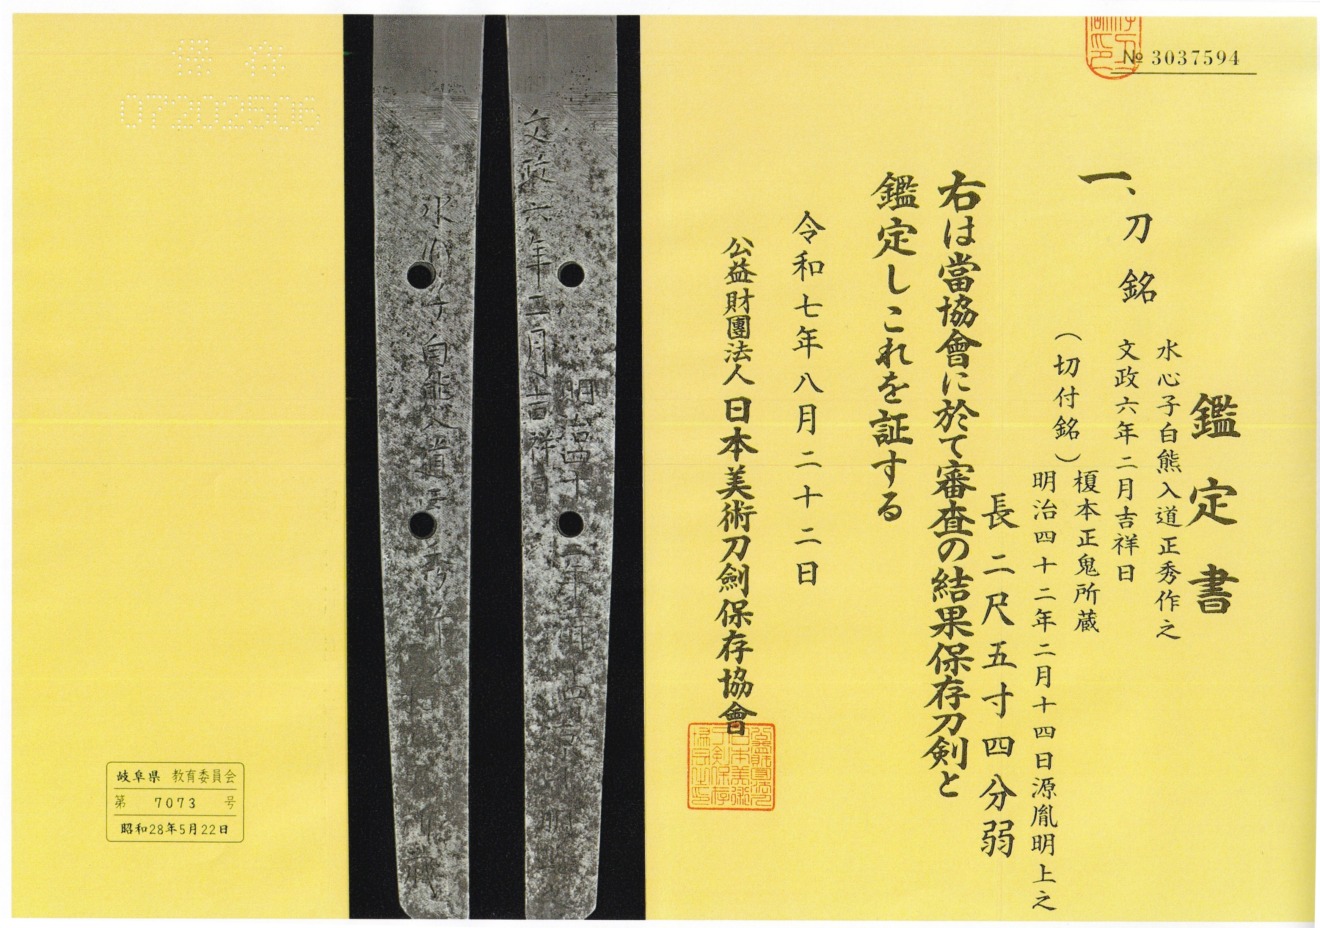 № 3037594
鑑定書
一、刀 銘
水心子白熊入道正秀作之
文政六年二月吉祥日
(切付銘)榎本正鬼所蔵
明治四十二年二月十四日源胤明上之
長二尺五寸四分弱
右は當協會に於て審査の結果保存刀剣と
鑑定しこれを証する
令和七年八月二十二日
公益財團法人日本美術刀劍保存協會
文政六年二月吉祥日
明治四十二年二月十四日
水心子白熊入道正秀作
保存
07202506
岐阜県 教育委員会
第 7073 号
昭和28年5月22日